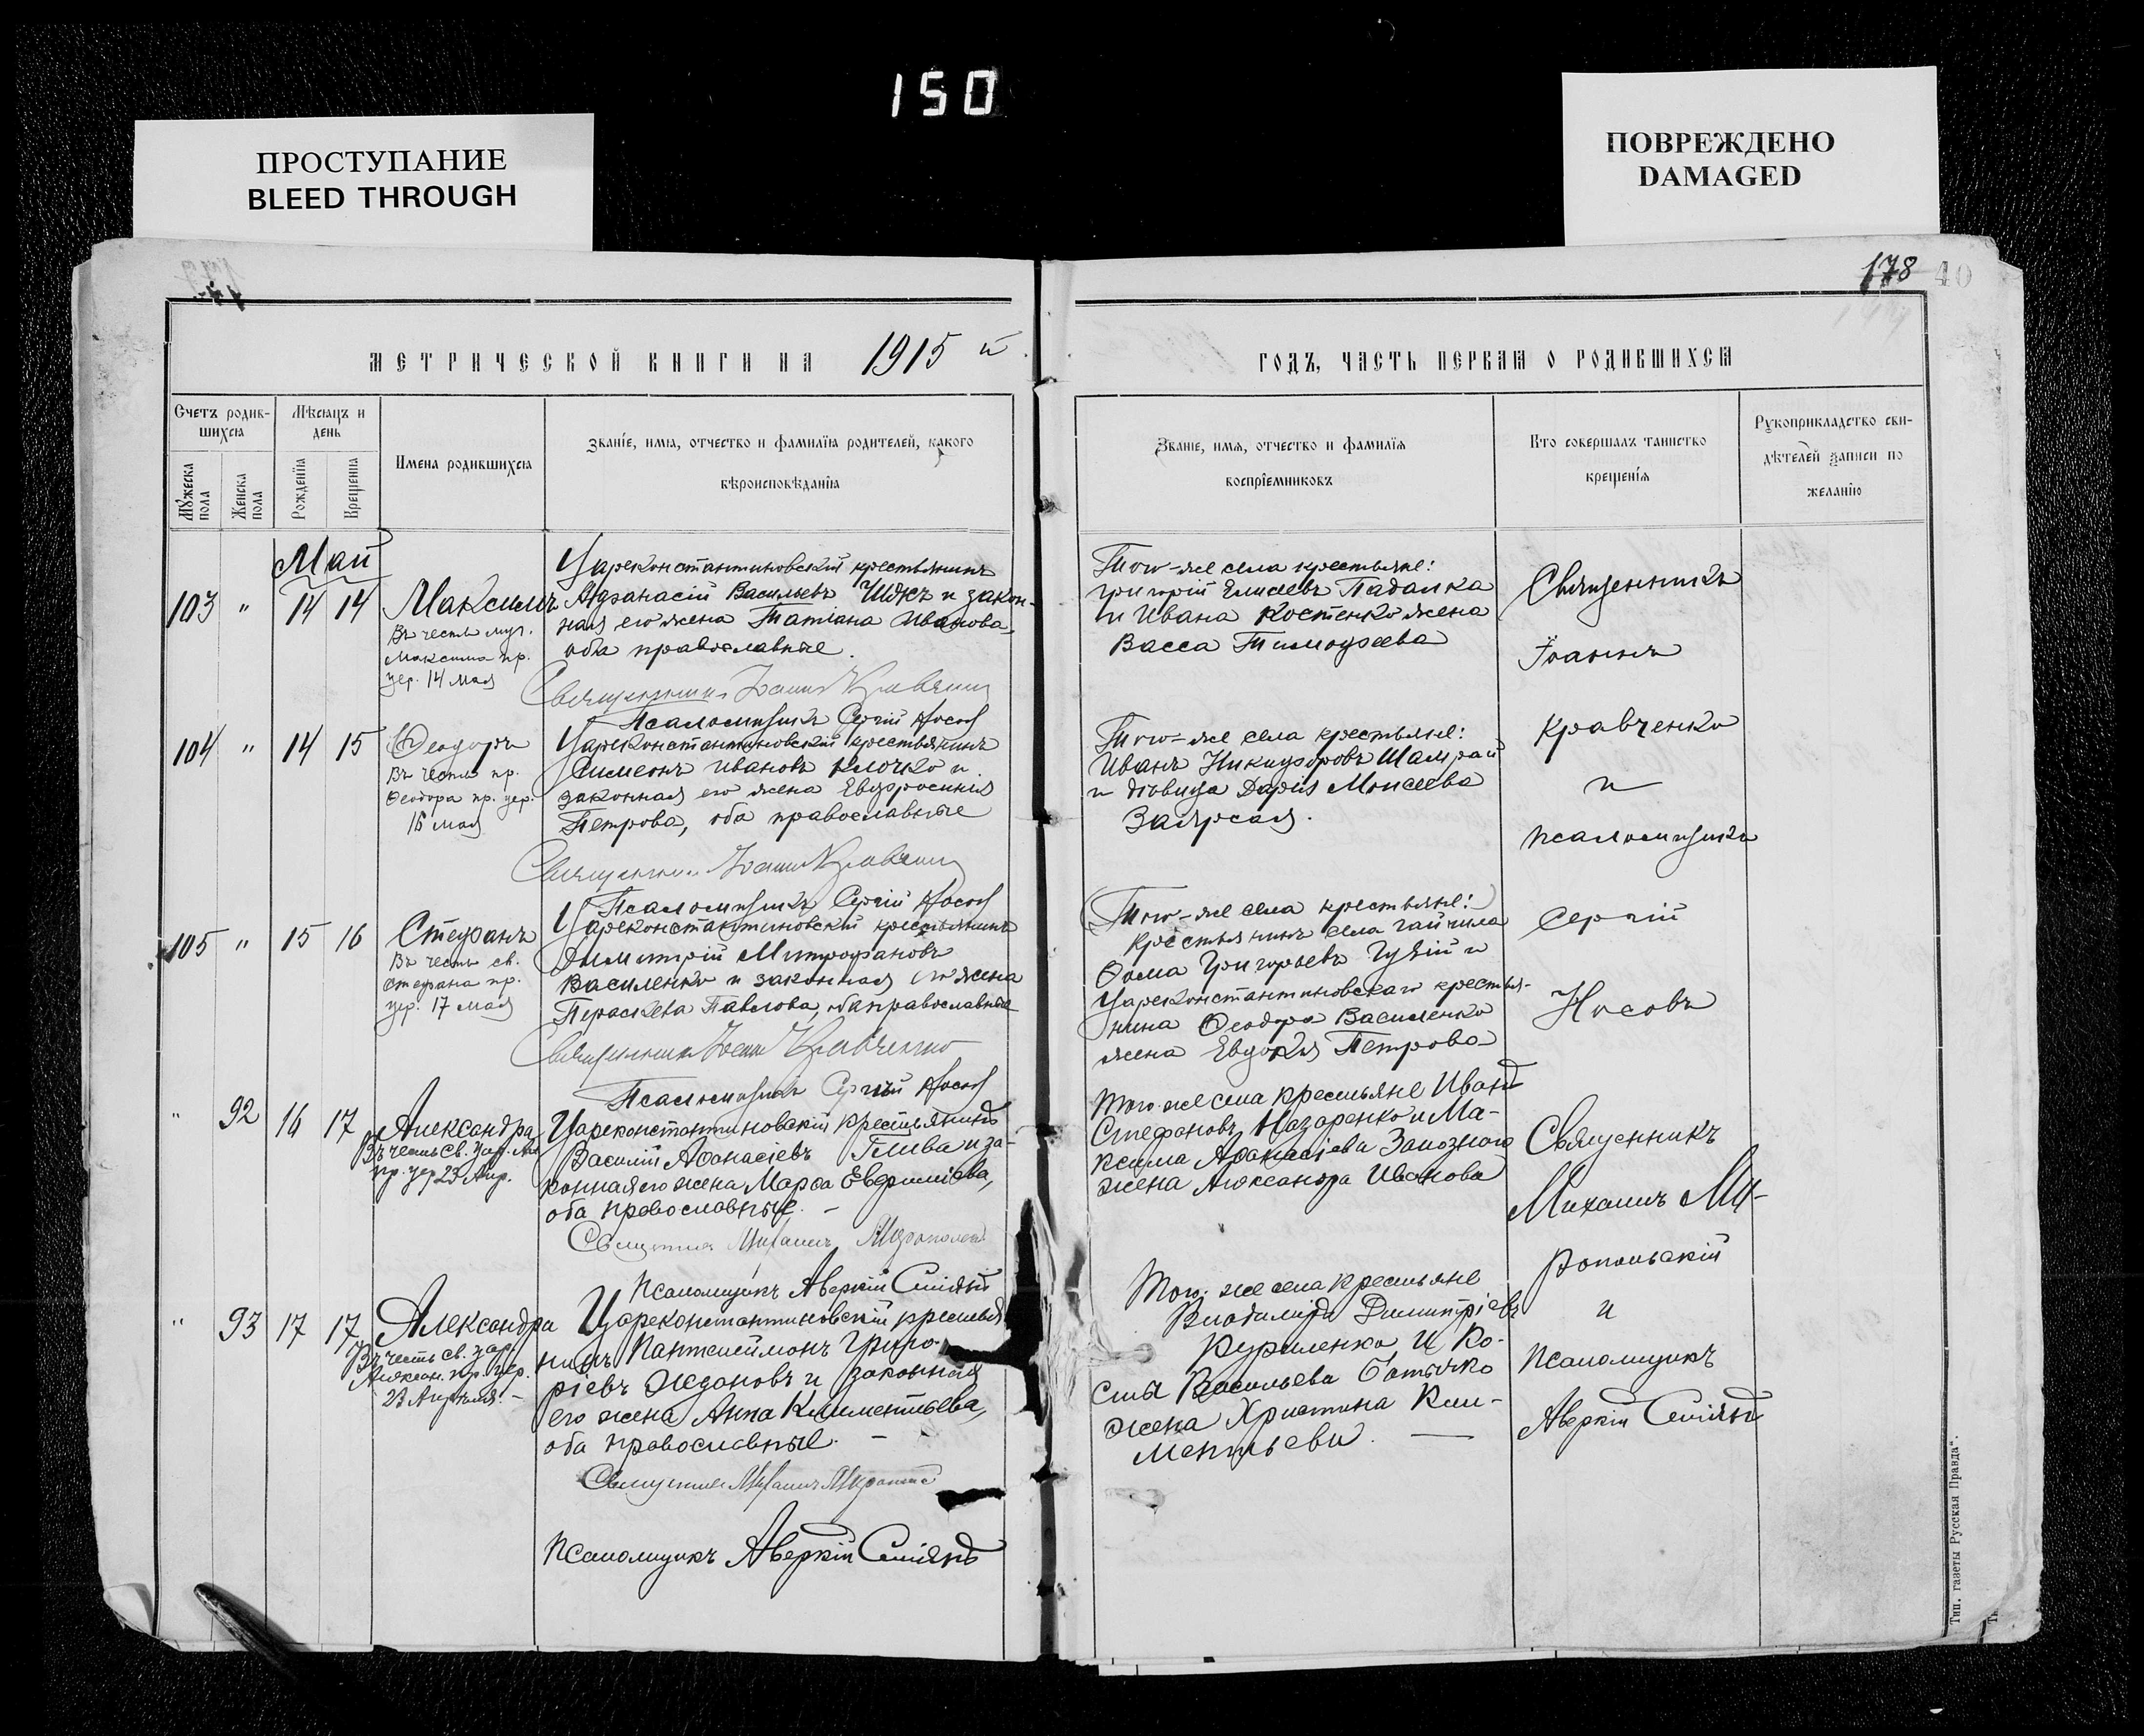 150
ПРОСТУПАНИЕ
BLEED THROUGH
ПОВРЕЖДЕНО
DAMAGED
178
40
МЕТРИЧЕСКОЙ КНИГИ НА 1915 й
ГОДЪ, ЧАСТЬ ПЕРВАЯ О РОДИВШИХСЯ
Счетъ родив-
шихся
Мѣсяцъ и
день
Мужеска
пола
Женска
пола
Рожденія
Крещенія
Имена родившихся
Званіе, имя, отчество и фамилія родителей, какого
вѣроисповѣданія
Званіе, имя, отчество и фамилія
воспріемниковъ
Кто совершалъ таинство
крещенія
Рукоприкладство сви-
дѣтелей записи по
желанію
Май
103 " 14 14
Максимъ
Въ честь муч.
Максима пр.
цер. 14 мая
Цареконстантиновскій крестьянинъ
Афанасій Васильевъ и закон-
ная его жена Татіана Иванова,
оба православные.
Священникъ Іоаннъ Кравченко
Псаломщикъ Сергій Носовъ
Того-же села крестьяне:
Григорій Елисеевъ Падалка
и Ивана Костенко жена
Васса Тимофеева
104 " 14 15
Феодоръ
Въ честь пр.
Феодора пр. цер.
16 мая
Цареконстантиновскій крестьянинъ
Симеонъ Ивановъ Клочко и
законная его жена Евфросинія
Петрова, оба православные
Священникъ Іоаннъ Кравченко
Псаломщикъ Сергій Носовъ
Того-же села крестьяне:
Иванъ Никифоровъ Шамрай
и дѣвица Дарія Моисеева
Заярная.
105 " 15 16
Стефанъ
Въ честь св.
Стефана пр.
цер. 17 мая
Цареконстантиновскій крестьянинъ
Димитрій Митрофановъ
Василенко и законная его жена
Параскева Павлова, оба православные
Священникъ Іоаннъ Кравченко
Псаломщикъ Сергій Носовъ
Того-же села крестьяне:
крестьянинъ села Гайчула
Фома Григорьевъ и
Цареконстантиновскаго крестья-
нина Феодора Василенко
жена Евдокія Петрова
Священникъ
Іоаннъ
Кравченко
и
псаломщикъ
Сергій
Носовъ
" 92 16 17
Александра
Въ честь св. цар. Ал.
пр. цер 23 Апр.
Цареконстантиновскій крестьянинъ
Василій Афанасіевъ Глива и за-
конная его жена Марфа Евфиміева,
оба православные. -
Священникъ Михаилъ Миропольскій
Псаломщикъ Аверкій
Того-же села крестьяне Иванъ
Стефановъ Назаренко и Ма-
ксима Афанасіева Запознаго
жена Александра Иванова
" 93 17 17
Александра
Въ честь св. цар.
Алексан. пр. цер.
23 Апрѣля. -
Цареконстантиновскій крестья-
нинъ Пантелеймонъ Григо-
ріевъ Ждановъ и законная
его жена Анна Климентьева,
оба православные. -
Священникъ Михаилъ
Псаломщикъ Аверкій
Того-же села крестьяне
Владиміръ Димитріевъ
Куриленко и Ко-
Васильева
жена Христина Кли-
ментьева. -
Священникъ
Михаилъ Ми-
ропольскій
и
Псаломщикъ
Аверкій
Тип. газеты „Русская Правда“.